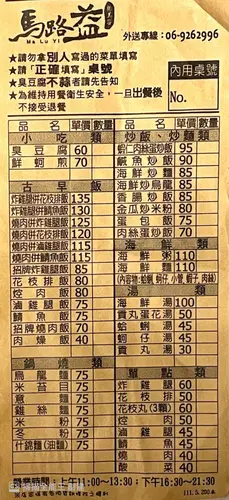 馬路益
Ma Lu Yi
外送專線：06-9262996
★請勿拿別人寫過的菜單填寫
★請「正確填寫」桌號
★臭豆腐不蒜者請先告知
★為維持用餐衛生安全，一旦出餐後
不接受退餐
內用桌號
No.
品名 單價 數量
小吃類
臭豆腐 60
鮮蚵煎 70
古早飯
炸雞腿併花枝排飯 135
炸雞腿併鯖魚飯 130
燒肉併花枝排飯 120
燒肉併炸雞腿飯 120
燒肉併滷雞腿飯 110
燒肉併鯖魚飯 115
招牌炸雞腿飯 85
花枝排飯 80
焢肉飯 80
滷雞腿飯 75
鯖魚飯 75
招牌燒肉飯 70
肉燥飯
鍋燒類
烏龍麵 75
米苔目 75
意麵 75
雞絲麵 75
米粉 75
冬粉 75
什錦麵(油麵) 75
品名 單價 數量
炒飯、炒麵類
蝦仁肉絲蛋炒飯 95
鹹魚炒飯 90
海鮮炒飯 85
海鮮炒烏龍 85
香腸炒飯 80
金瓜炒米粉 80
蛋包飯 75
肉絲蛋炒飯 70
海鮮類
海鮮粥 110
海鮮麵 110
湯類
海鮮湯 100
貢丸蛋花湯 50
蛤蜊湯 45
蚵仔湯 45
貢丸湯 30
單點類
炸雞腿 60
花枝排 50
花枝丸(3顆) 60
焢肉 50
滷雞腿 45
鯖魚 45
燒肉 40
酸菜 40
營業時間：上午11:00~13:30；下午16:30~21:30